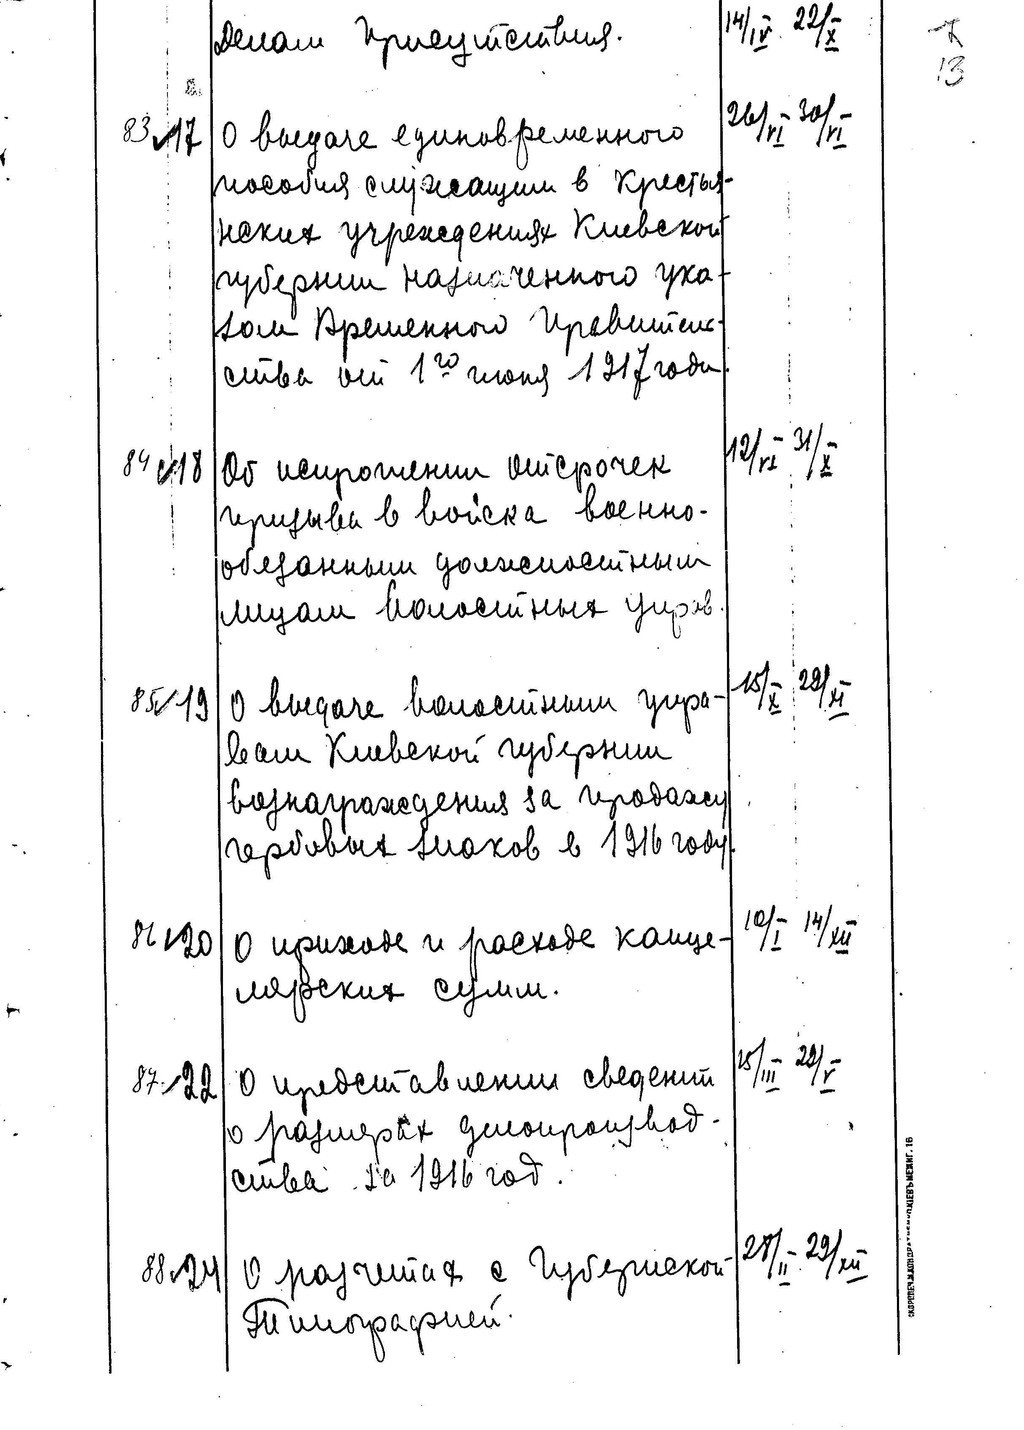 делам Присутствия. 14/IV 22/X
13
83 17 О выдаче единовременного 26/VI 30/VI
пособия служащим в Крестья-
нских учреждениях Киевской
губернии назначенного ука-
зом Временного Правитель-
ства от 1го июня 1917 года.
84 18 Об испрошении отсрочек 12/VI 31/X
призыва в войска военно-
обязанным должностным
лицам волостных управ.
85 19 О выдаче волостным упра- 15/X 29/XI
вам Киевской губернии
вознаграждения за продажу
гербовых знаков в 1916 году.
86 20 О приходе и расходе канце- 10/I 14/XII
лярских сумм.
87 22 О представлении сведений 15/III 22/V
о размерах делопроизвод-
ства за 1916 год.
88 24 О расчетах с Губернской 28/II 29/XII
Типографией.